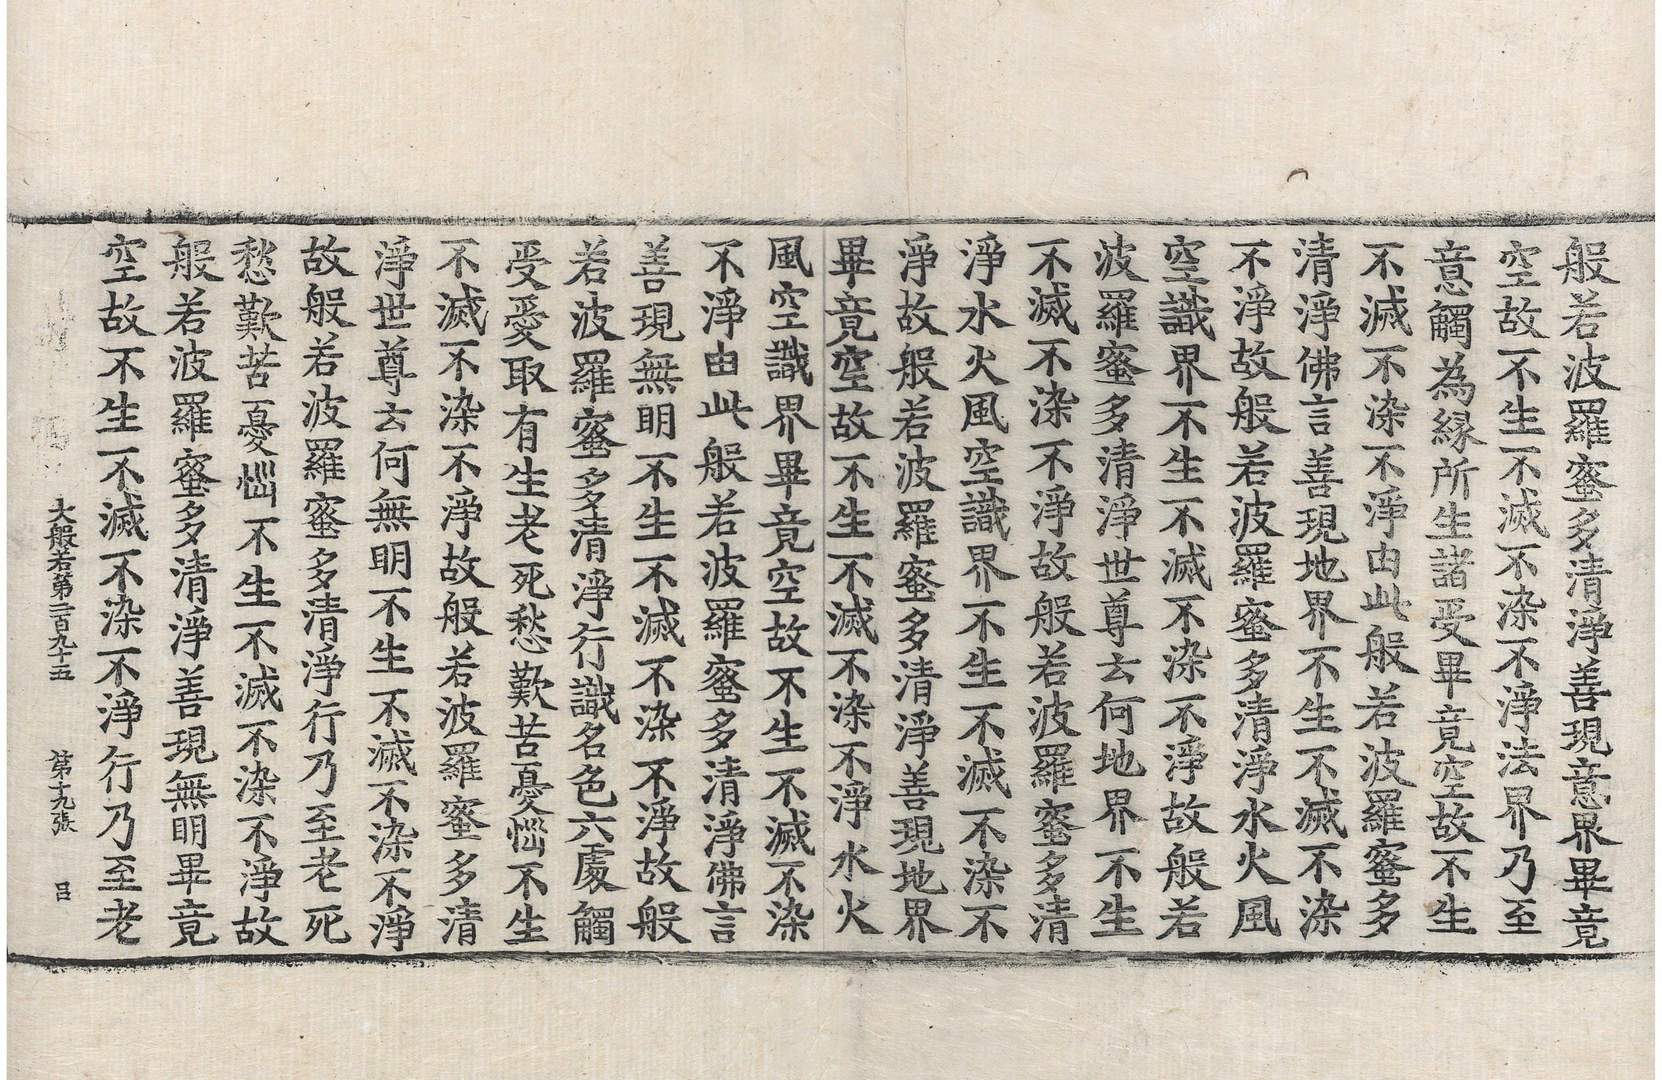 般若波羅蜜多清淨善現意界畢竟
空故不生不滅不染不淨法界乃至
意觸為緣所生諸受畢竟空故不生
不滅不染不淨由此般若波羅蜜多
清淨佛言善現地界不生不滅不染
不淨故般若波羅蜜多清淨水火風
空識界不生不滅不染不淨故般若
波羅蜜多清淨世尊云何地界不生
不滅不染不淨故般若波羅蜜多清
淨水火風空識界不生不滅不染不
淨故般若波羅蜜多清淨善現地界
畢竟空故不生不滅不染不淨水火
風空識界畢竟空故不生不滅不染
不淨由此般若波羅蜜多清淨佛言
善現無明不生不滅不染不淨故般
若波羅蜜多清淨行識名色六處觸
受愛取有生老死愁歎苦憂惱不生
不滅不染不淨故般若波羅蜜多清
淨世尊云何無明不生不滅不染不淨
故般若波羅蜜多清淨行乃至老死
愁歎苦憂惱不生不滅不染不淨故
般若波羅蜜多清淨善現無明畢竟
空故不生不滅不染不淨行乃至老
大般若第二百九十五 第十九張 呂